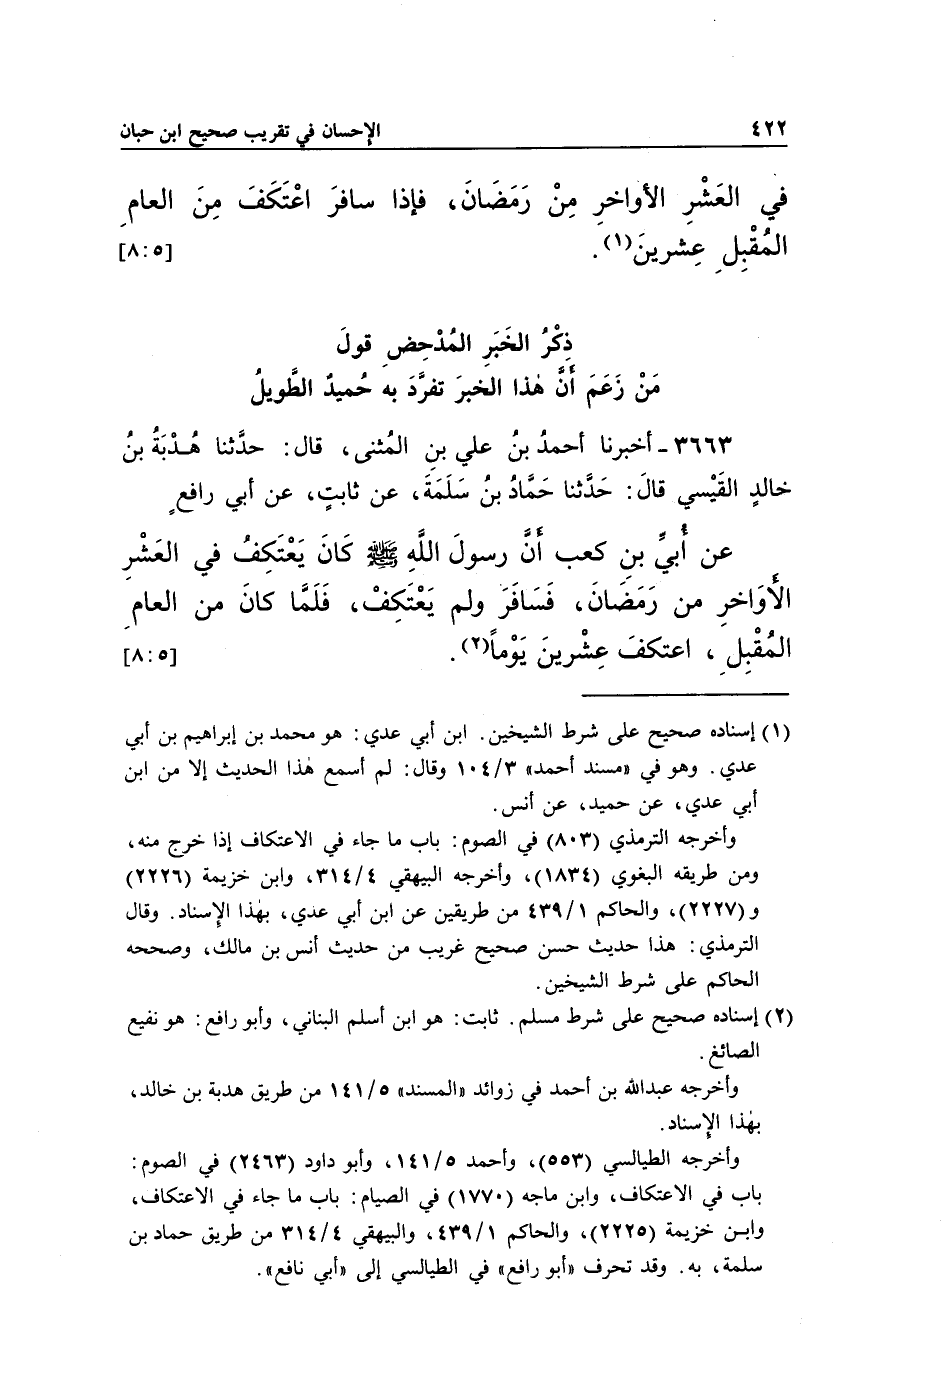 ٤٢٢ الإحسان في تقريب صحيح ابن حبان
في العَشْرِ الأواخرِ مِنْ رَمَضَانَ، فإذا سافرَ اعْتَكَفَ مِنَ العامِ
المُقْبِلِ عِشرينَ(١). [٨:٥]
ذِكْرُ الخَبَرِ المُدْحِضِ قولَ
مَنْ زَعَمَ أَنَّ هٰذا الخبرَ تفرَّدَ به حُميدٌ الطَّويلُ
٣٦٦٣ ـ أخبرنا أحمدُ بنُ علي بنِ المُثنى، قال: حدَّثنا هُدْبَةُ بنُ
خالدٍ القَيْسي قالَ: حَدَّثنا حَمَّادُ بنُ سَلَمَةَ، عن ثابتٍ، عن أبي رافعٍ
عن أُبيِّ بنِ كعب أَنَّ رسولَ اللَّهِ ﷺ كَانَ يَعْتَكِفُ في العَشْرِ
الأَوَاخرِ من رَمَضَانَ، فَسَافَرَ ولم يَعْتَكِفْ، فَلَمَّا كانَ من العامِ
المُقْبِلِ، اعتكفَ عِشْرينَ يَوْماً(٢). [٨:٥]
(١) إسناده صحيح على شرط الشيخين. ابن أبي عدي: هو محمد بن إبراهيم بن أبي
عدي. وهو في «مسند أحمد» ١٠٤/٣ وقال: لم أسمع هٰذا الحديث إلا من ابن
أبي عدي، عن حميد، عن أنس.
وأخرجه الترمذي (٨٠٣) في الصوم: باب ما جاء في الاعتكاف إذا خرج منه،
ومن طريقه البغوي (١٨٣٤)، وأخرجه البيهقي ٣١٤/٤، وابن خزيمة (٢٢٢٦)
و (٢٢٢٧)، والحاكم ٤٣٩/١ من طريقين عن ابن أبي عدي، بهٰذا الإِسناد. وقال
الترمذي: هذا حديث حسن صحيح غريب من حديث أنس بن مالك، وصححه
الحاكم على شرط الشيخين.
(٢) إسناده صحيح على شرط مسلم. ثابت: هو ابن أسلم البناني، وأبو رافع: هو نفيع
الصائغ.
وأخرجه عبدالله بن أحمد في زوائد «المسند» ١٤١/٥ من طريق هدبة بن خالد،
بهٰذا الإِسناد.
وأخرجه الطيالسي (٥٥٣)، وأحمد ١٤١/٥، وأبو داود (٢٤٦٣) في الصوم:
باب في الاعتكاف، وابن ماجه (١٧٧٠) في الصيام: باب ما جاء في الاعتكاف،
وابـن خزيمة (٢٢٢٥)، والحاكم ٤٣٩/١، والبيهقي ٣١٤/٤ من طريق حماد بن
سلمة، به. وقد تحرف «أبو رافع» في الطيالسي إلى «أبي نافع».